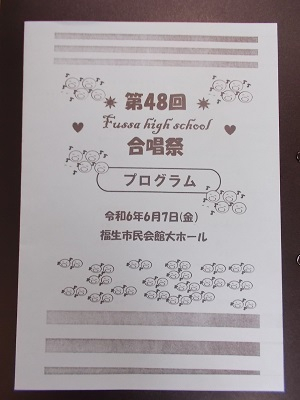 第48回
Fussa high school
合唱祭
プログラム
令和6年6月7日(金)
福生市民会館大ホール